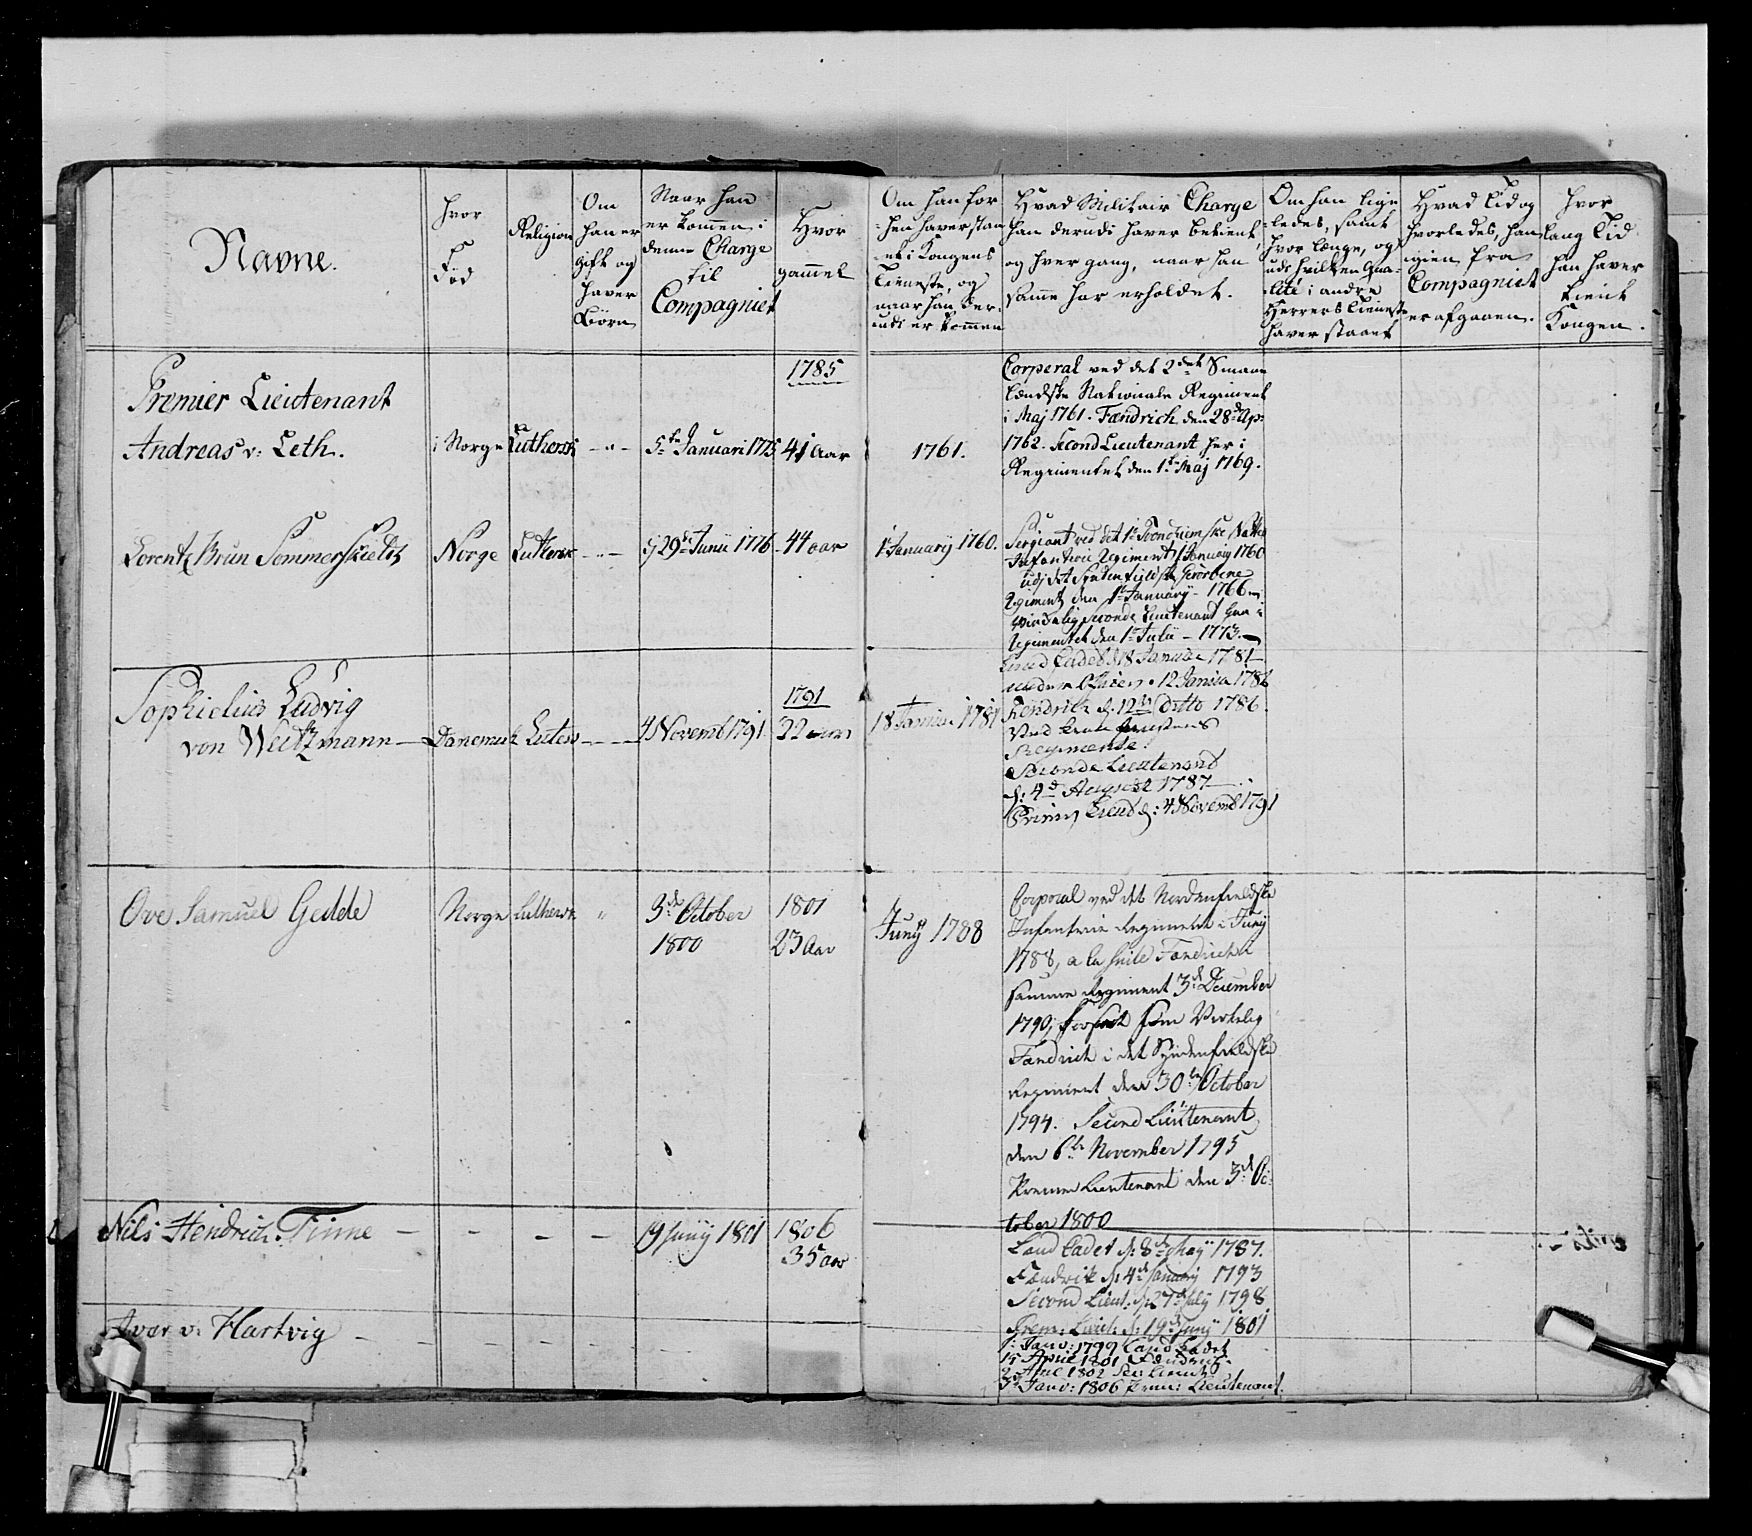 Navne.
Hvor
Fød
Religion
Om
han er
gift og
haver
Børn
Naar han
er kommen i
denne Charge
til
Compagniet
Hvor
gammel
Om han for
hen haver staa
et i Kongens
Tieneste, og
naar han der-
udi er kommen
Hvad Militair Charge
han derudi haver betient,
og hver gang, naar han
samme har erholdet.
Om han lige
ledes, samt
hvor længe, og
udi hvilken Qua-
lité i andre
Herrers Tieneste
haver staaet
Hvad Tid og
hvorledes, han
igien fra
Compagniet
er afgaaen.
Hvor
lang Tid
han haver
tient
Kongen.
Premier Lieutenant
Andreas v: Leth.
i Norge
Luthersk
5te Januari 1775
1785
41 Aar
1761.
Corperal ved det 2det Smaae
lændske Nationale Regiment
i Maj 1761. Fændrich den 28de Ap:
1762. Second Lieutenant her i
Regimentet den 1te Maj 1769.
Lorentz Brun Sommerskield
Norge
Luthersk
29de Junii 1776
44 aar
1 Januarij 1760.
Sergiant ved det 1te Trondhiemske Nat.
Infanterie Regiment 1 Januarij 1760
udj det Syndenfieldske Gevorbene
Regiment den 1te Januarij 1766
Virkelig Seconde Lieutenant her i
Regimentet den 1te Julii - 1773.
Sophielius Ludvig
von Weitzmann
Danemark
Luters
4 Novemb 1791
1791
22 aar
18 Januar 1781
Land Cadet d 18 Januar 1781
under Officer 12 Janua 1786
Fendrich d. 12te ditto 1786.
Ved
Regimente.
Seconde Lieutenand
d: 4d August 1787
Primr Lieud d: 4 Novemb 1791
Ove Samuel Gedde
Norge
Luthersk
3de October
1800
1801
23 Aar
Junij 1788
Corporal ved det Nordenfieldske
Infanterie Regiment i Junij
1788, a la suite Fændrich
samme Regiment 3de December
1790, forsat som Virkelig
Fændrich i det Syndenfieldske
Regiment den 30te October
1794. Second Lieutenant
den 6te November 1795
Premier Lieutenant den 3de Oc-
tober 1800
Nils Hendrich Finne
19 Junij 1801
1806
35 aar
Land Cadet d: 8de Maij 1787.
Fændrik d: 4de Januarij 1793
Second Lieut: d: 27de July 1798
Prem: Lieut: d: 19de Junij 1801
Ivar v: Hartvig
1: Janv: 1799 Land Cadet
15 April 1801 Fændrich
2 April 1802 Sec: Lieut
3d Janv: 1806 Prem: Lieutenant.